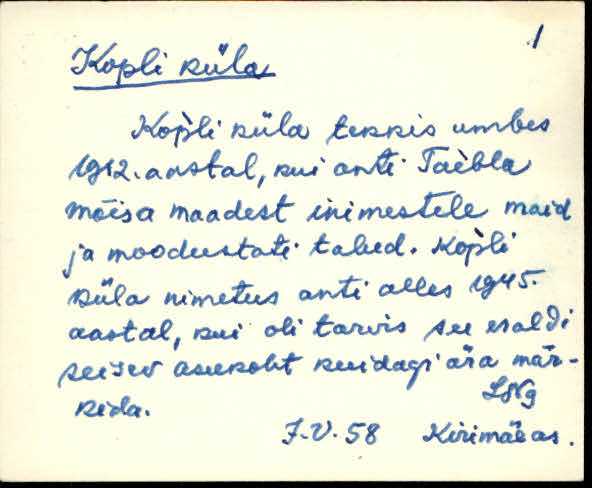 1
Kopli küla
Kop̀li küla tekkis umbes
1912. aastal, kui anti Taèbla
mõisa maadest inimestele maid
ja moodustati talud. Kop̀li
küla nimetus anti alles 1945.
aastal, kui oli tarvis see eraldi
seisev asukoht kuidagi ära mär-
kida.
7.V.58 Kirimäe as.